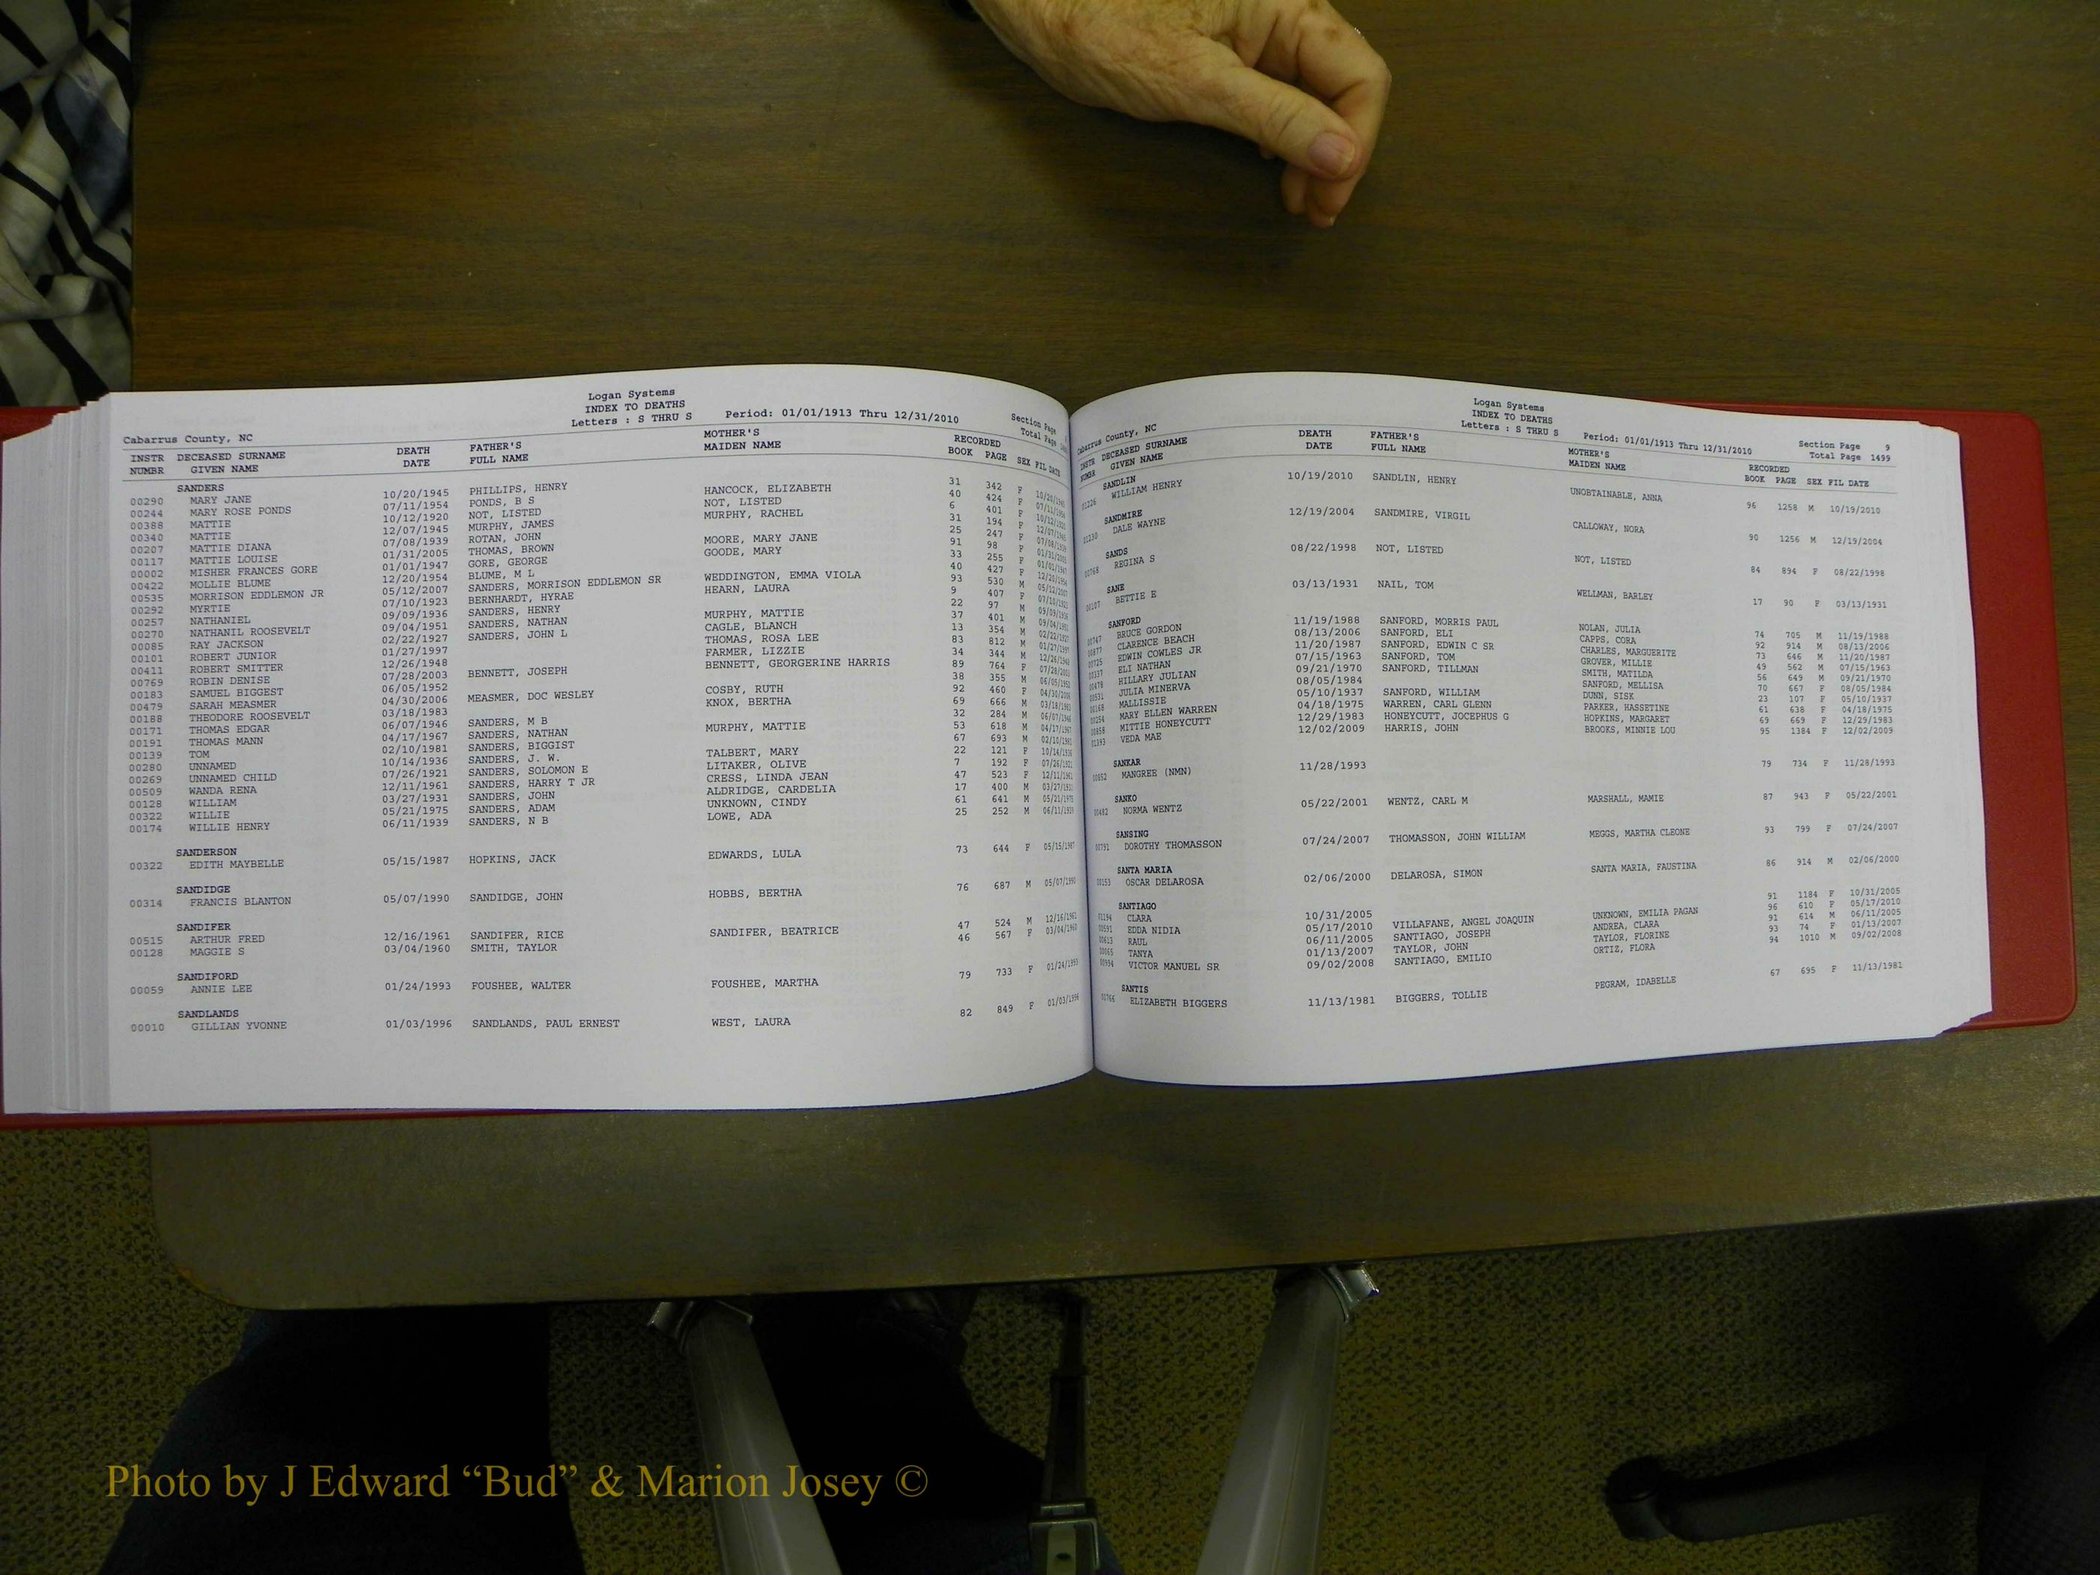 Logan Systems
INDEX TO DEATHS
Letters : S THRU S Period: 01/01/1913 Thru 12/31/2010
Section Page
Total Page
Cabarrus County, NC
INSTR DECEASED SURNAME DEATH FATHER'S MOTHER'S RECORDED
NUMBR GIVEN NAME DATE FULL NAME MAIDEN NAME BOOK PAGE SEX FIL DATE
SANDERS
00290 MARY JANE 10/20/1945 PHILLIPS, HENRY 31 342 F 10/20/1945
00244 MARY ROSE PONDS 07/11/1954 PONDS, B S HANCOCK, ELIZABETH 40 424 F 07/11/1954
00388 MATTIE 10/12/1920 NOT, LISTED NOT, LISTED 6 401 F 10/12/1920
00340 MATTIE 12/07/1945 MURPHY, JAMES MURPHY, RACHEL 31 194 F 12/07/1945
00207 MATTIE DIANA 07/08/1939 ROTAN, JOHN 25 247 F 07/08/1939
00117 MATTIE LOUISE 01/31/2005 THOMAS, BROWN MOORE, MARY JANE 91 98 F 01/31/2005
00002 MISHER FRANCES GORE 01/01/1947 GORE, GEORGE GOODE, MARY 33 255 F 01/01/1947
00422 MOLLIE BLUME 12/20/1954 BLUME, M L 40 427 F 12/20/1954
00535 MORRISON EDDLEMON JR 05/12/2007 SANDERS, MORRISON EDDLEMON SR WEDDINGTON, EMMA VIOLA 93 530 M 05/12/2007
00292 MYRTIE 07/10/1923 BERNHARDT, HYRAE HEARN, LAURA 9 407 F 07/10/1923
00257 NATHANIEL 09/09/1936 SANDERS, HENRY 22 97 M 09/09/1936
00270 NATHANIL ROOSEVELT 09/04/1951 SANDERS, NATHAN MURPHY, MATTIE 37 401 M 09/04/1951
00085 RAY JACKSON 02/22/1927 SANDERS, JOHN L CAGLE, BLANCH 13 354 M 02/22/1927
00101 ROBERT JUNIOR 01/27/1997 THOMAS, ROSA LEE 83 812 M 01/27/1997
00411 ROBERT SMITTER 12/26/1948 FARMER, LIZZIE 34 344 M 12/26/1948
00769 ROBIN DENISE 07/28/2003 BENNETT, JOSEPH BENNETT, GEORGERINE HARRIS 89 764 F 07/28/2003
00183 SAMUEL BIGGEST 06/05/1952 38 355 M 06/05/1952
00479 SARAH MEASMER 04/30/2006 MEASMER, DOC WESLEY COSBY, RUTH 92 460 F 04/30/2006
00188 THEODORE ROOSEVELT 03/18/1983 KNOX, BERTHA 69 666 M 03/18/1983
00171 THOMAS EDGAR 06/07/1946 SANDERS, M B 32 284 M 06/07/1946
00191 THOMAS MANN 04/17/1967 SANDERS, NATHAN MURPHY, MATTIE 53 618 M 04/17/1967
00139 TOM 02/10/1981 SANDERS, BIGGIST 67 693 M 02/10/1981
00280 UNNAMED 10/14/1936 SANDERS, J. W. TALBERT, MARY 22 121 F 10/14/1936
00269 UNNAMED CHILD 07/26/1921 SANDERS, SOLOMON E LITAKER, OLIVE 7 192 F 07/26/1921
00509 WANDA RENA 12/11/1961 SANDERS, HARRY T JR CRESS, LINDA JEAN 47 523 F 12/11/1961
00128 WILLIAM 03/27/1931 SANDERS, JOHN ALDRIDGE, CARDELIA 17 400 M 03/27/1931
00322 WILLIE 05/21/1975 SANDERS, ADAM UNKNOWN, CINDY 61 641 M 05/21/1975
00174 WILLIE HENRY 06/11/1939 SANDERS, N B LOWE, ADA 25 252 M 06/11/1939
SANDERSON
00322 EDITH MAYBELLE 05/15/1987 HOPKINS, JACK EDWARDS, LULA 73 644 F 05/15/1987
SANDIDGE
00314 FRANCIS BLANTON 05/07/1990 SANDIDGE, JOHN HOBBS, BERTHA 76 687 M 05/07/1990
SANDIFER
00515 ARTHUR FRED 12/16/1961 SANDIFER, RICE SANDIFER, BEATRICE 47 524 M 12/16/1961
00128 MAGGIE S 03/04/1960 SMITH, TAYLOR 46 567 F 03/04/1960
SANDIFORD
00059 ANNIE LEE 01/24/1993 FOUSHEE, WALTER FOUSHEE, MARTHA 79 733 F 01/24/1993
SANDLANDS
00010 GILLIAN YVONNE 01/03/1996 SANDLANDS, PAUL ERNEST WEST, LAURA 82 849 F 01/03/1996
Logan Systems
INDEX TO DEATHS
Letters : S THRU S Period: 01/01/1913 Thru 12/31/2010
Section Page 9
Total Page 1499
Cabarrus County, NC
INSTR DECEASED SURNAME DEATH FATHER'S MOTHER'S RECORDED
NUMBR GIVEN NAME DATE FULL NAME MAIDEN NAME BOOK PAGE SEX FIL DATE
SANDLIN
01226 WILLIAM HENRY 10/19/2010 SANDLIN, HENRY UNOBTAINABLE, ANNA 96 1258 M 10/19/2010
SANDMIRE
01230 DALE WAYNE 12/19/2004 SANDMIRE, VIRGIL CALLOWAY, NORA 90 1256 M 12/19/2004
SANDS
00768 REGINA S 08/22/1998 NOT, LISTED NOT, LISTED 84 894 F 08/22/1998
SANE
00107 BETTIE E 03/13/1931 NAIL, TOM WELLMAN, BARLEY 17 90 F 03/13/1931
SANFORD
00747 BRUCE GORDON 11/19/1988 SANFORD, MORRIS PAUL NOLAN, JULIA 74 705 M 11/19/1988
00877 CLARENCE BEACH 08/13/2006 SANFORD, ELI CAPPS, CORA 92 914 M 08/13/2006
00725 EDWIN COWLES JR 11/20/1987 SANFORD, EDWIN C SR CHARLES, MARGUERITE 73 646 M 11/20/1987
00337 ELI NATHAN 07/15/1963 SANFORD, TOM GROVER, MILLIE 49 562 M 07/15/1963
00478 HILLARY JULIAN 09/21/1970 SANFORD, TILLMAN SMITH, MATILDA 56 649 M 09/21/1970
00531 JULIA MINERVA 08/05/1984 SANFORD, MELLISA 70 667 F 08/05/1984
00168 MALLISSIE 05/10/1937 SANFORD, WILLIAM DUNN, SISK 23 107 F 05/10/1937
00254 MARY ELLEN WARREN 04/18/1975 WARREN, CARL GLENN PARKER, HASSETINE 61 638 F 04/18/1975
00858 MITTIE HONEYCUTT 12/29/1983 HONEYCUTT, JOCEPHUS G HOPKINS, MARGARET 69 669 F 12/29/1983
01393 VEDA MAE 12/02/2009 HARRIS, JOHN BROOKS, MINNIE LOU 95 1384 F 12/02/2009
SANKAR
00852 MANGREE (NMN) 11/28/1993 79 734 F 11/28/1993
SANKO
00482 NORMA WENTZ 05/22/2001 WENTZ, CARL M MARSHALL, MAMIE 87 943 F 05/22/2001
SANSING
00791 DOROTHY THOMASSON 07/24/2007 THOMASSON, JOHN WILLIAM MEGGS, MARTHA CLEONE 93 799 F 07/24/2007
SANTA MARIA
00153 OSCAR DELAROSA 02/06/2000 DELAROSA, SIMON SANTA MARIA, FAUSTINA 86 914 M 02/06/2000
SANTIAGO
01194 CLARA 10/31/2005 91 1184 F 10/31/2005
00591 EDDA NIDIA 05/17/2010 VILLAFANE, ANGEL JOAQUIN UNKNOWN, EMILIA PAGAN 96 610 F 05/17/2010
00613 RAUL 06/11/2005 SANTIAGO, JOSEPH ANDREA, CLARA 91 614 M 06/11/2005
00065 TANYA 01/13/2007 TAYLOR, JOHN TAYLOR, FLORINE 93 74 F 01/13/2007
00994 VICTOR MANUEL SR 09/02/2008 SANTIAGO, EMILIO ORTIZ, FLORA 94 1010 M 09/02/2008
SANTIS
01766 ELIZABETH BIGGERS 11/13/1981 BIGGERS, TOLLIE PEGRAM, IDABELLE 67 695 F 11/13/1981
Photo by J Edward “Bud” & Marion Josey ©